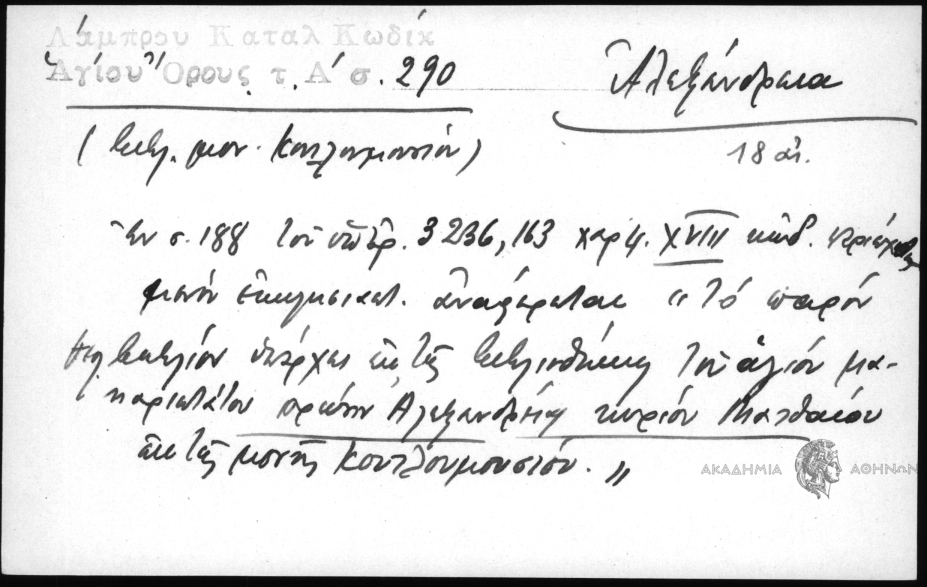 Λάμπρου Καταλ Κωδικ
Ἁγίου Ὄρους τ. Α' σ. 290
Ἀλεξάνδρεια
(βιβλ. μον. Κουτλουμουσίου)
18 αἰ.
Ἐν σ. 188 τοῦ ὑπ' ἀρ. 3236,163 χαρτ. XVIII κώδ.
ἀναφέρεται "τό παρόν
βιβλίον ὑπάρχει ἐκ τῆς βιβλιοθήκης τοῦ ἁγίου μα-
καριωτάτου πρώην Ἀλεξανδρείας κυρίου Ματθαίου
ἐκ τῆς μονῆς Κουτλουμουσίου."
ΑΚΑΔΗΜΙΑ ΑΘΗΝΩΝ